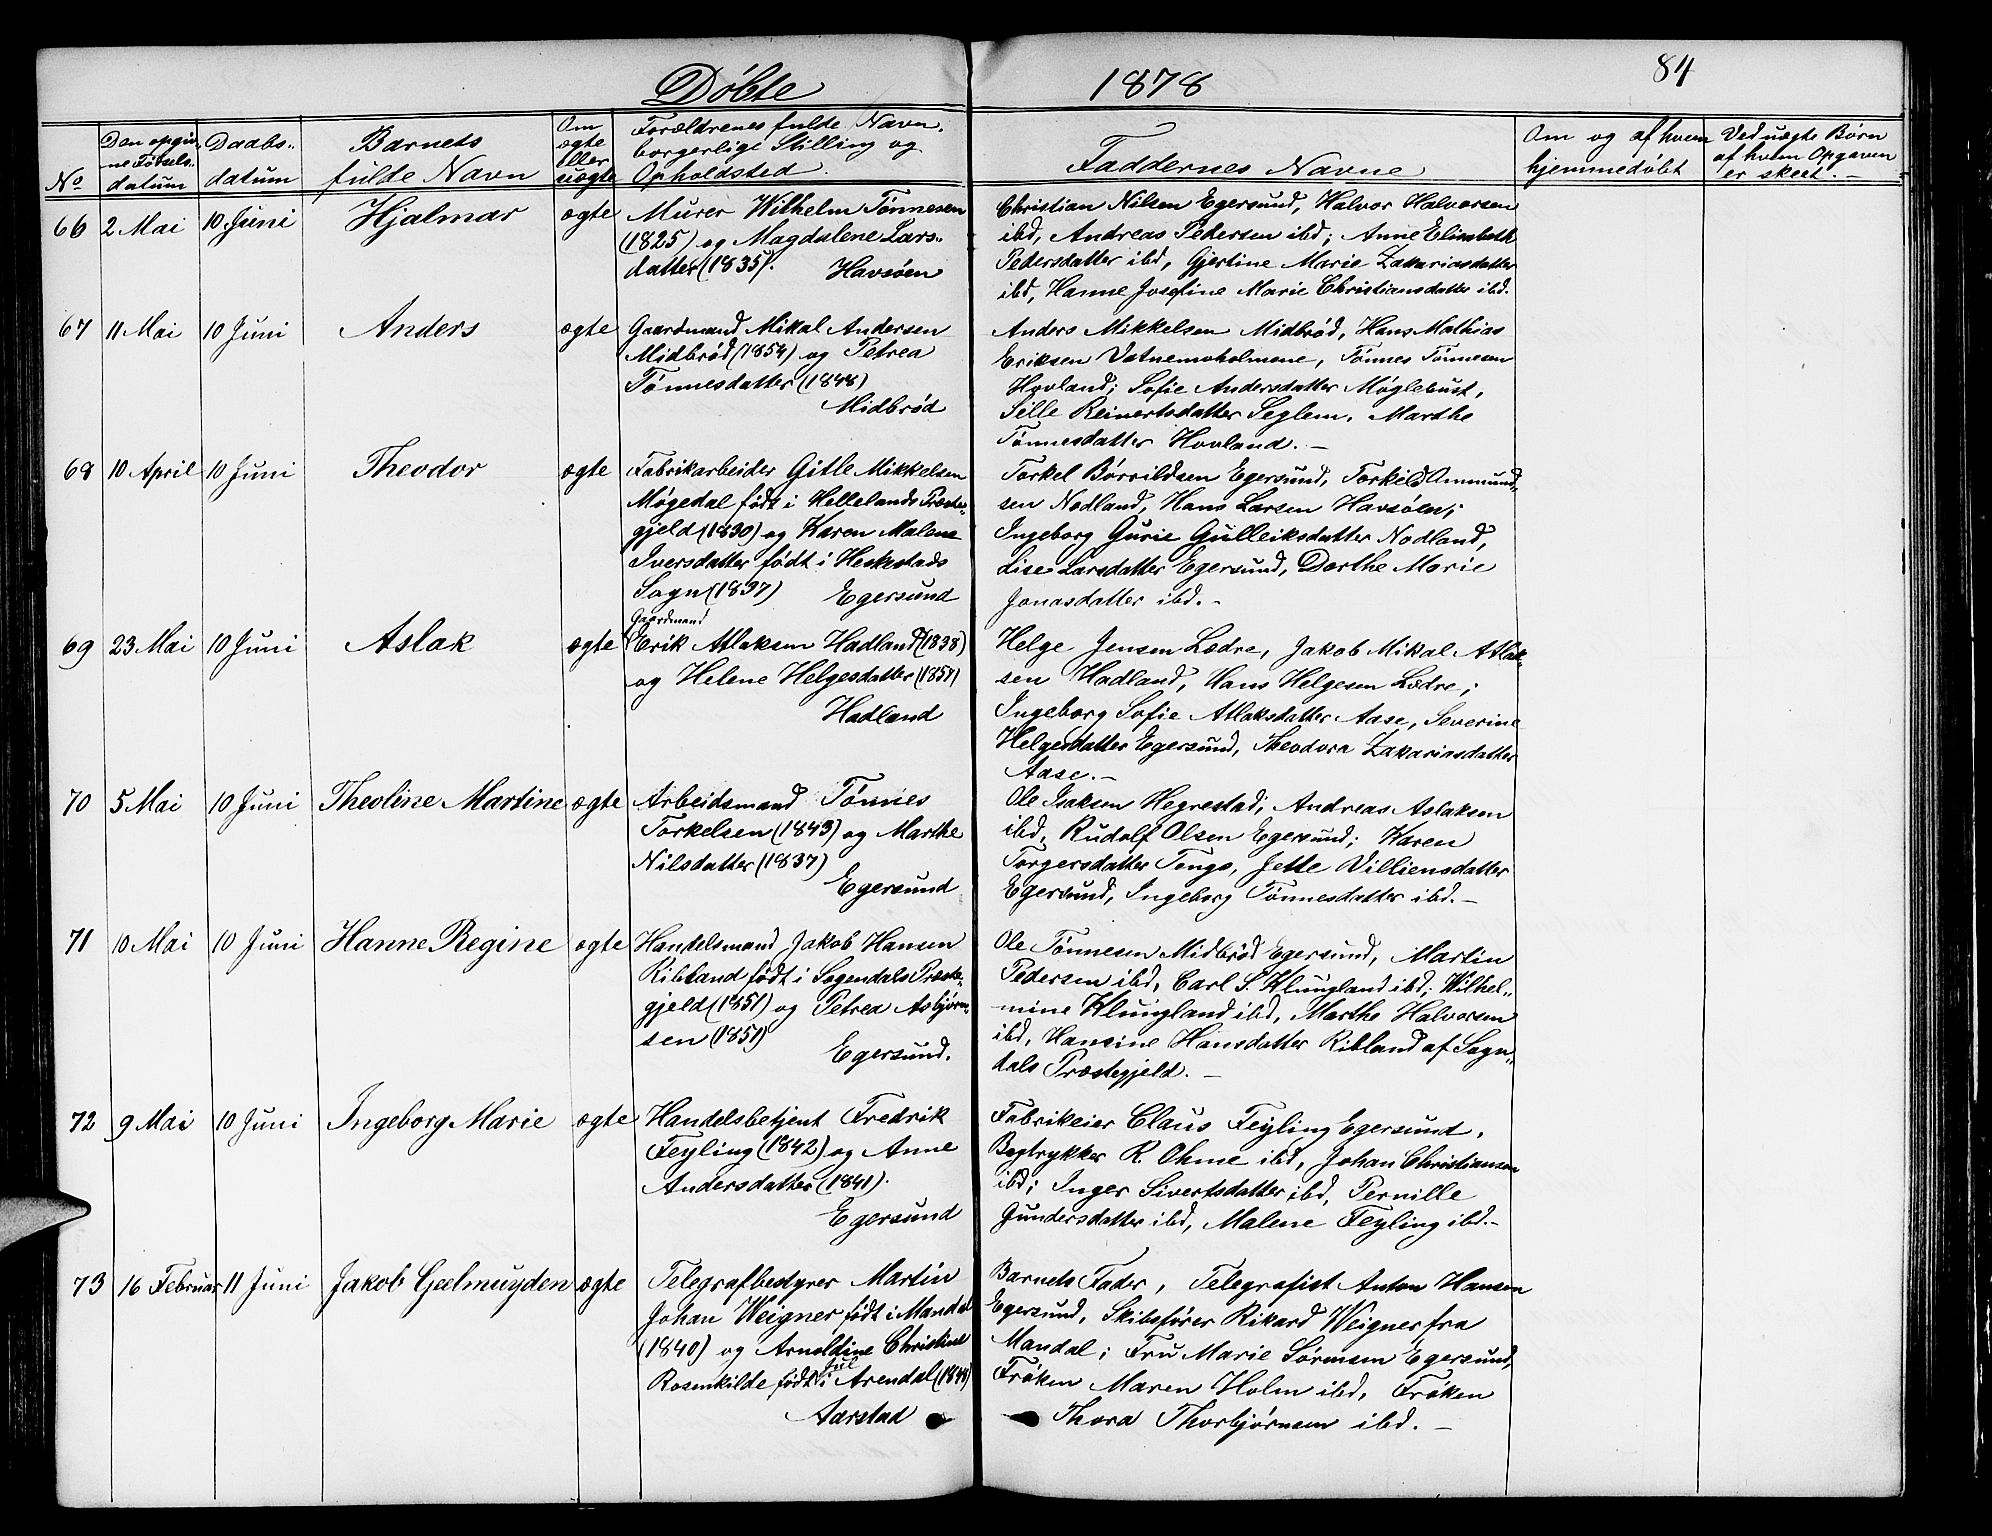 Døbte 1878 84
No
Den opgivne Fødsels datum
Daabsdatum
Barnets fulde Navn
Om ægte eller uægte
Forældrenes fulde Navn, borgerlige Stilling og Opholdsted.
Faddernes Navne
Om og af hvem hjemmedøbt
Ved uægte Børn af hvem Opgaven er skeet. —
66 2 Mai 10 Juni Hjalmar ægte
Murer Wilhelm Tønnesen
(1825) og Magdalene Lars-
datter (1835). Havsøen
Christian Nilsen Egersund, Halvor Halvorsen
ibd, Andreas Pedersen ibd; Anne Elisabeth
Pedersdatter ibd, Gjertine Marie Zakariasdatter
ibd, Hanne Josefine Marie Christiansdatter ibd.
67 11 Mai 10 Juni Anders ægte
Gaardmand Mikal Andersen
Midbrød (1854) og Petrea
Tønnesdatter (1848)
Midbrød
Anders Mikkelsen Midbrød, Hans Mathias
Eriksen Vatnemoholmene, Tønnes Tønnesen
Hovland; Sofie Andersdatter Møglebust,
Sille Reinertsdatter Seglem, Marthe
Tønnesdatter Hovland. —
68 10 April 10 Juni Theodor ægte
Fabrikarbeider Gitle Mikkelsen
Møgedal født i Hellelands Præste-
gjeld (1830) og Karen Malene
Iversdatter født i Heskestads
Sogn (1837) Egersund
Torkel Børrildsen Egersund, Torkild Ommund-
sen Nodland, Hans Larsen Havsøen;
Ingeborg Gurie Gulleiksdatter Nodland,
Lise Larsdatter Egersund, Dorthe Marie
Jonasdatter ibd. -
69 23 Mai 10 Juni Aslak ægte
Gaardmand
Erik Atlaksen Hadland (1838)
og Helene Helgesdatter (1857)
Hadland
Helge Jensen Lædre, Jakob Mikal Atlak-
sen Hadland, Hans Helgesen Lædre;
Ingeborg Sofie Atlaksdatter Aase, Severine
Helgesdatter Egersund, Theodora Zakariasdatter
Aase. —
70 5 Mai 10 Juni Theoline Martine ægte
Arbeidsmand Tønnes
Torkelsen (1843) og Marthe
Nilsdatter (1837)
Egersund
Ole Isaksen Hegrestad, Andreas Aslaksen
ibd, Rudolf Olsen Egersund; Karen
Torgersdatter Tengs, Jette Villiensdatter
Egersund, Ingeborg Tønnesdatter ibd. —
71 10 Mai 10 Juni Hanne Regine ægte
Handelsmand Jakob Hansen
Ribland født i Sogendals Præste-
gjeld (1851) og Petrea Asbjørn-
sen (1851)
Egersund.
Ole Tønnesen Midbrød Egersund, Martin
Pedersen ibd, Carl S. Klungland ibd; Wilhel-
mine Klungland ibd, Marthe Halvorsen
ibd, Hansine Hansdatter Ribland af Sogn-
dals Præstegjeld. —
72 9 Mai 10 Juni Ingeborg Marie ægte
Handelsbetjent Fredrik
Feyling (1842) og Anne
Andersdatter (1841).
Egersund
Fabrikeier Claus Feyling Egersund,
Bogtrykker R. Ohme ibd, Johan Christiansen
ibd; Inger Sivertsdatter ibd, Pernille
Gundersdatter ibd, Malene Feyling ibd. -
73 16 Februar 11 Juni Jakob Geelmuyden ægte
Telegrafbestyrer Martin
Johan Weigner født i Mandal
(1840) og Arnoldine Christine
Juul
Rosenkilde født i Arendal (1844)
Aarstad
Barnets Fader, Telegrafist Anton Hansen
Egersund, Skibsfører Rikard Weigner fra
Mandal; Fru Marie Sørensen Egersund,
Frøken Maren Holm ibd, Frøken
Thora Thorbjørnsen ibd. —